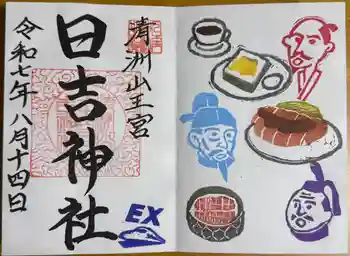 清洲山王宮
日吉神社
令和七年八月十四日
EX